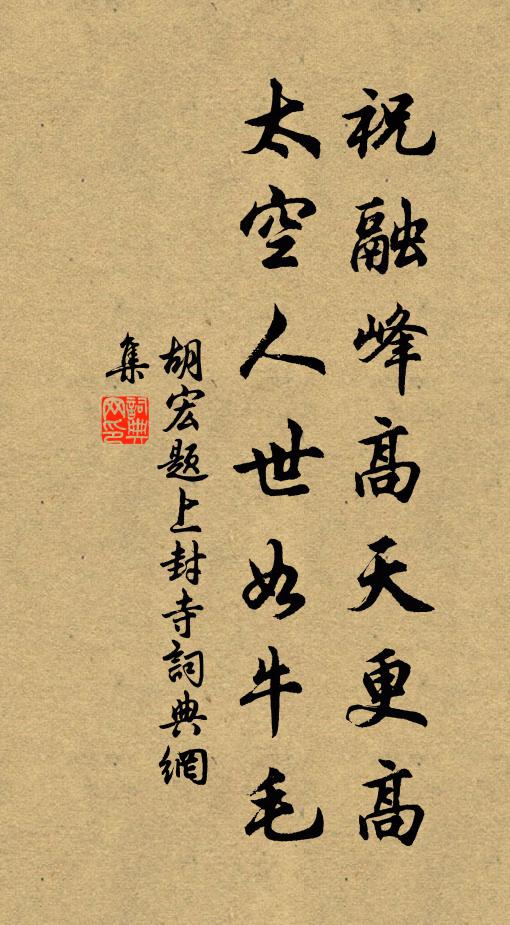 祝融峰高天更高
太空人世如牛毛
胡宏題上封寺詞典網
集
詞典
网印